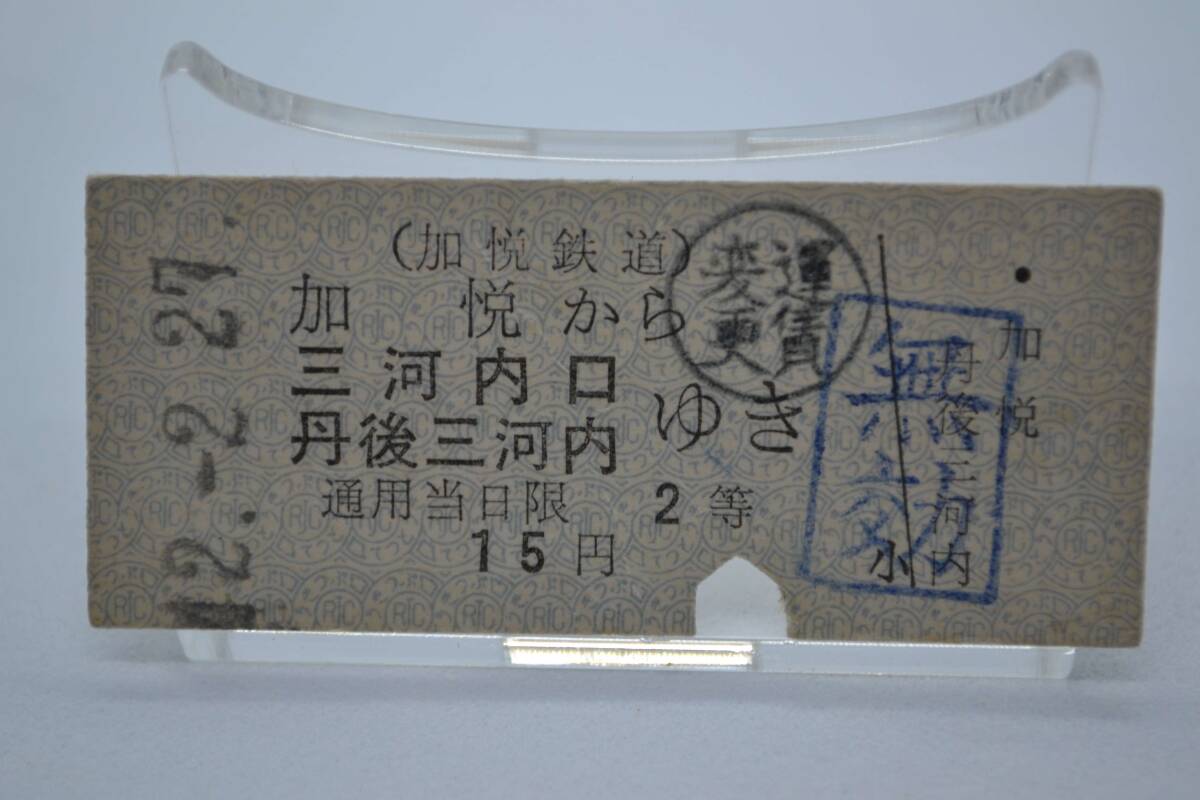 (加悦鉄道)
加悦から
三河内口
丹後三河内
ゆき
通用当日限 2等
15円
42.-2.27.
運賃
変更
無効
加悦
丹後三河内
小